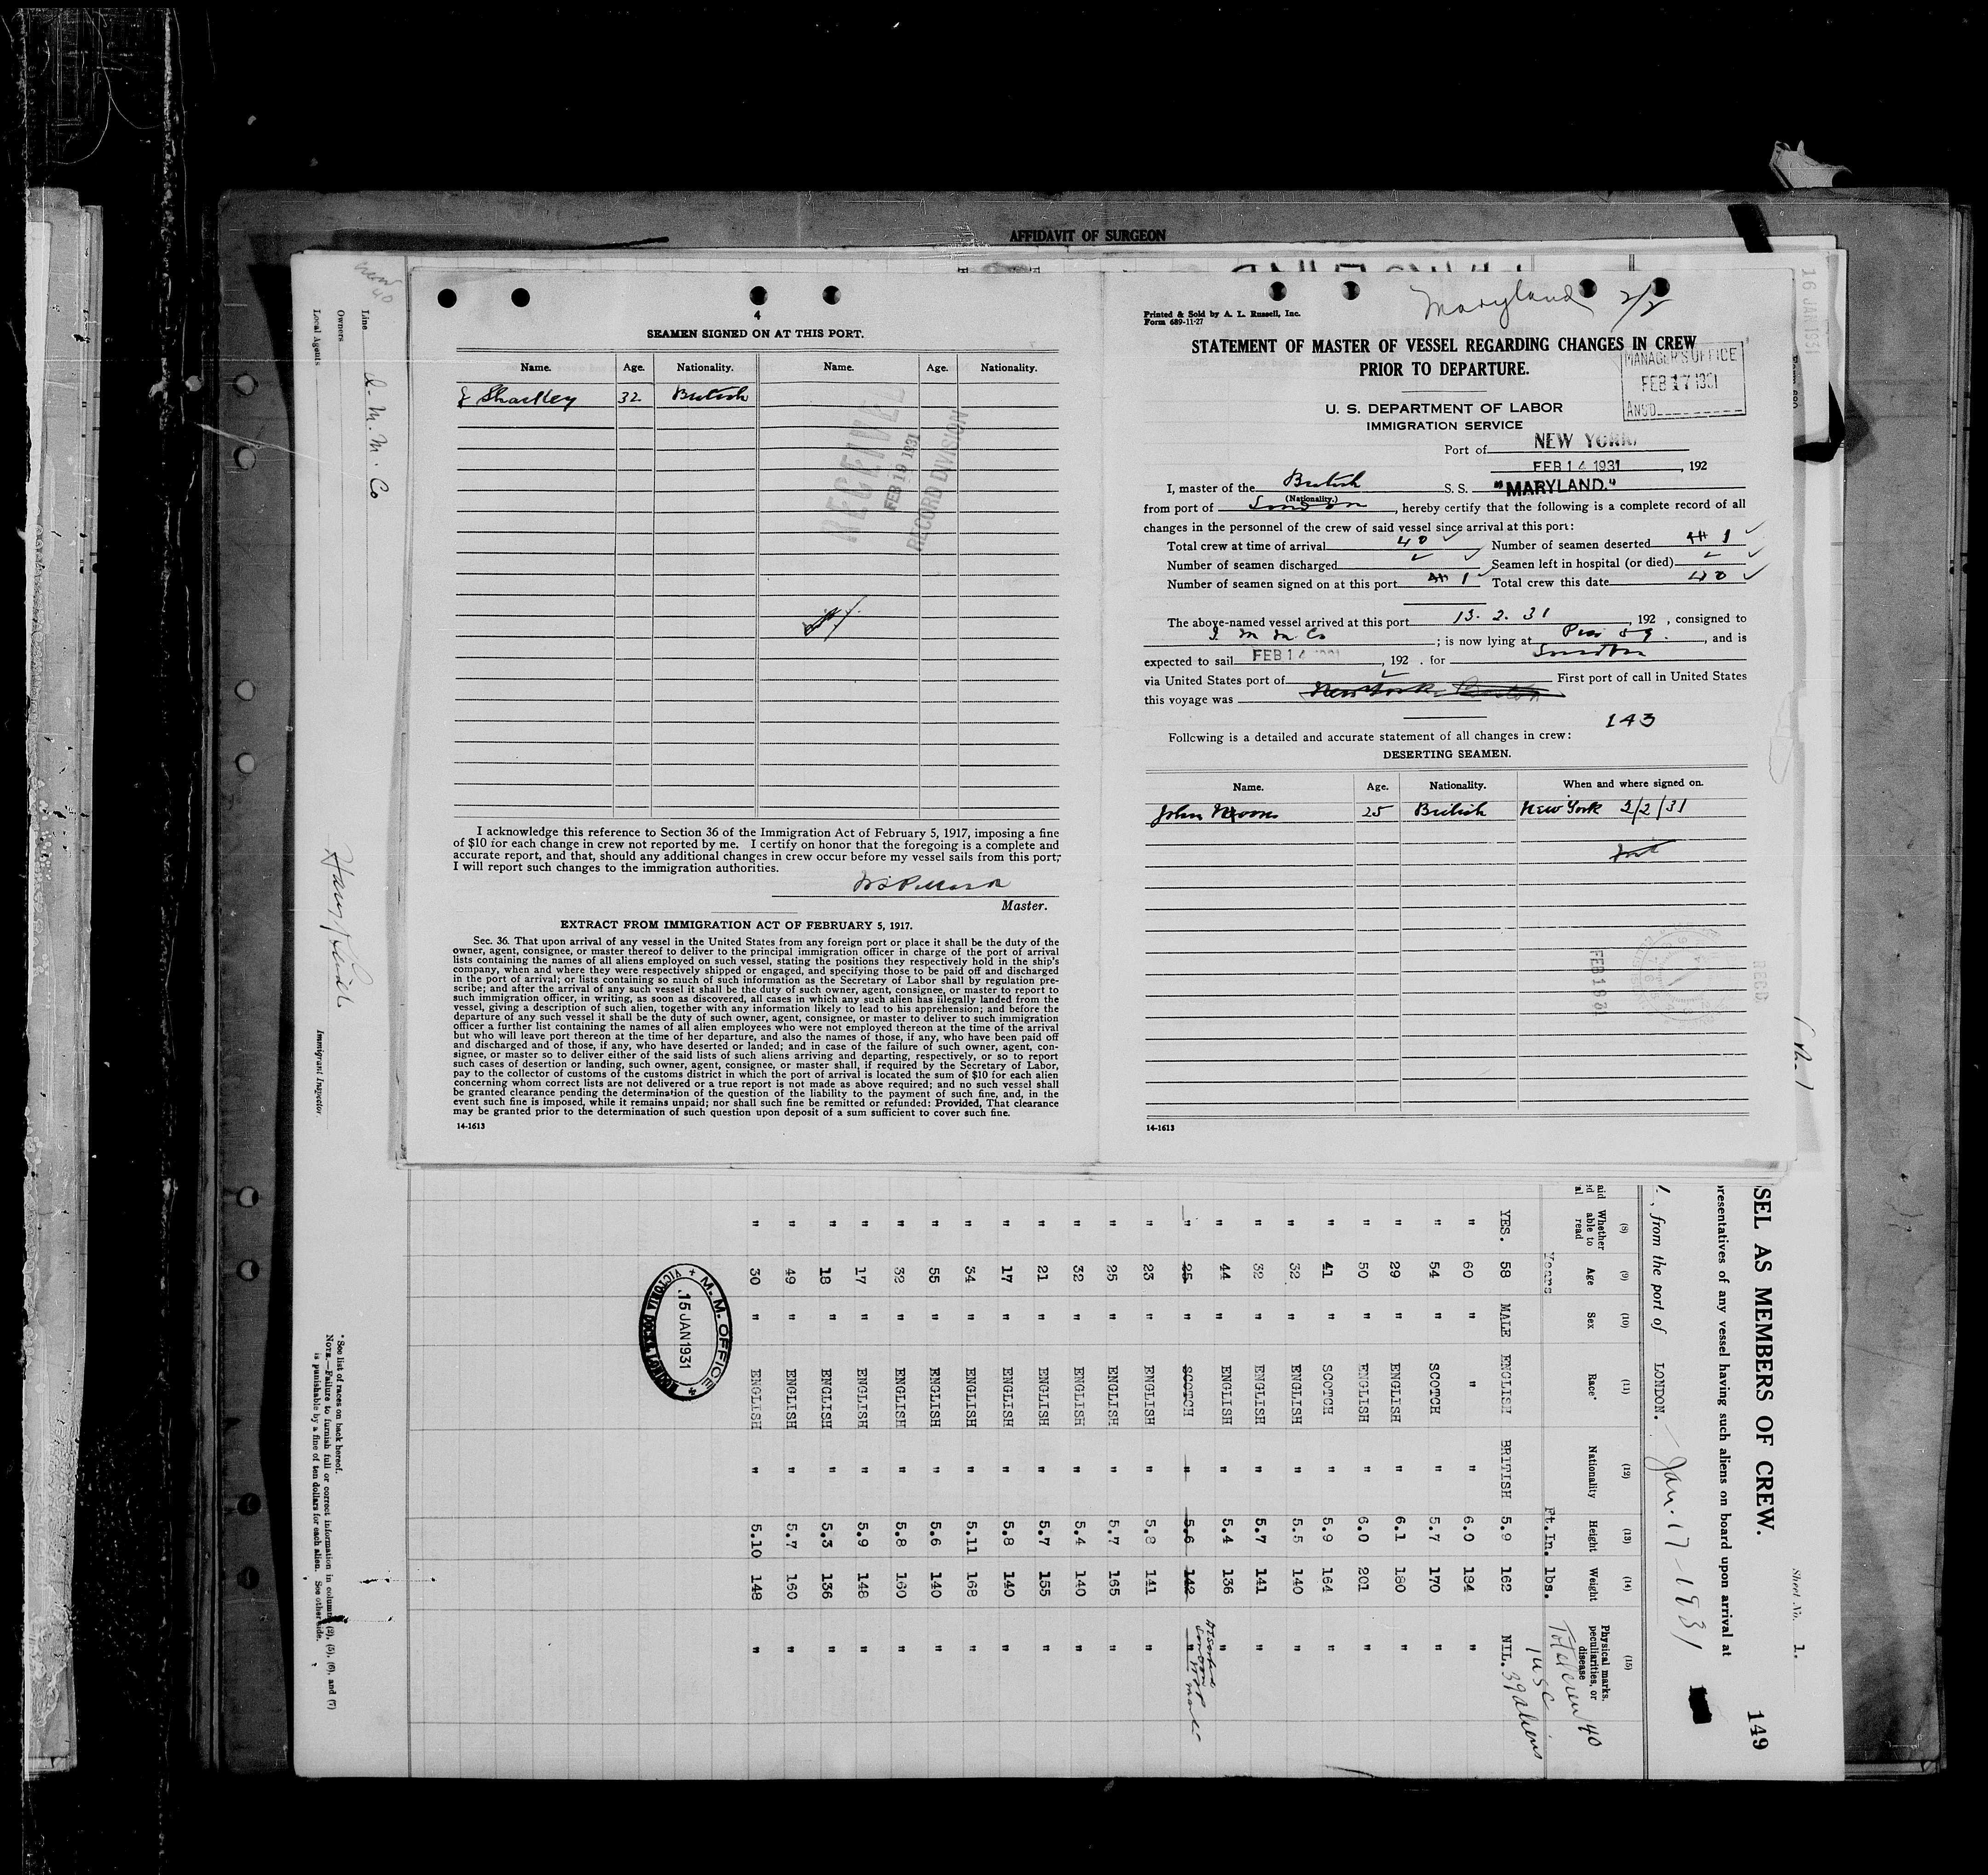 AFFIDAVIT OF SURGEON
4
SEAMEN SIGNED ON AT THIS PORT.
Name. Age. Nationality. Name. Age. Nationality.
Sharkley 32 British
RECEIVED
FEB 19 1931
RECORD DIVISION
I acknowledge this reference to Section 36 of the Immigration Act of February 5, 1917, imposing a fine
of $10 for each change in crew not reported by me. I certify on honor that the foregoing is a complete and
accurate report, and that, should any additional changes in crew occur before my vessel sails from this port,
I will report such changes to the immigration authorities.
Master.
EXTRACT FROM IMMIGRATION ACT OF FEBRUARY 5, 1917.
Sec. 36. That upon arrival of any vessel in the United States from any foreign port or place it shall be the duty of the
owner, agent, consignee, or master thereof to deliver to the principal immigration officer in charge of the port of arrival
lists containing the names of all aliens employed on such vessel, stating the positions they respectively hold in the ship's
company, when and where they were respectively shipped or engaged, and specifying those to be paid off and discharged
in the port of arrival; or lists containing so much of such information as the Secretary of Labor shall by regulation pre-
scribe; and after the arrival of any such vessel it shall be the duty of such owner, agent, consignee, or master to report to
such immigration officer, in writing, as soon as discovered, all cases in which any such alien has illegally landed from the
vessel, giving a description of such alien, together with any information likely to lead to his apprehension; and before the
departure of any such vessel it shall be the duty of such owner, agent, consignee, or master to deliver to such immigration
officer a further list containing the names of all alien employees who were not employed thereon at the time of the arrival
but who will leave port thereon at the time of her departure, and also the names of those, if any, who have been paid off
and discharged and of those, if any, who have deserted or landed; and in case of the failure of such owner, agent, con-
signee, or master so to deliver either of the said lists of such aliens arriving and departing, respectively, or so to report
such cases of desertion or landing, such owner, agent, consignee, or master shall, if required by the Secretary of Labor,
pay to the collector of customs of the customs district in which the port of arrival is located the sum of $10 for each alien
concerning whom correct lists are not delivered or a true report is not made as above required; and no such vessel shall
be granted clearance pending the determination of the question of the liability to the payment of such fine, and, in the
event such fine is imposed, while it remains unpaid; nor shall such fine be remitted or refunded: Provided, That clearance
may be granted prior to the determination of such question upon deposit of a sum sufficient to cover such fine.
14-1613
Maryland 2/2
Printed & Sold by A. L. Russell, Inc.
Form 689-11-27
STATEMENT OF MASTER OF VESSEL REGARDING CHANGES IN CREW
PRIOR TO DEPARTURE.
MANAGER'S OFFICE
FEB 17 1931
ANS'D
U. S. DEPARTMENT OF LABOR
IMMIGRATION SERVICE
Port of NEW YORK
FEB 14 1931, 192
I, master of the British S. S. "MARYLAND."
(Nationality.)
from port of London, hereby certify that the following is a complete record of all
changes in the personnel of the crew of said vessel since arrival at this port:
Total crew at time of arrival 40 Number of seamen deserted 1
Number of seamen discharged Seamen left in hospital (or died)
Number of seamen signed on at this port 1 Total crew this date 40
The above-named vessel arrived at this port 13. 2. 31, 192 , consigned to
I M M Co ; is now lying at Pier 59. , and is
expected to sail FEB 14 1931, 192 . for London
via United States port of First port of call in United States
this voyage was New York Boston
143
Following is a detailed and accurate statement of all changes in crew:
DESERTING SEAMEN.
Name. Age. Nationality. When and where signed on.
John Moore 25 British New York 2/2/31
FEB 19 31
RECD
14-1613
16 JAN 1931
Line I. M. M. Co
Owners
Local Agents
Immigrant Inspector.
SEL AS MEMBERS OF CREW.
Sheet No. 1.
149
resentatives of any vessel having such aliens on board upon arrival at
, from the port of LONDON. Jan. 17-1931
(8) (9) (10) (11) (12) (13) (14) (15)
Whether able to read Age Sex Race* Nationality Height Weight Physical marks, peculiarities, or disease
Years Ft.In. lbs.
Total crew 40
1 USC
39 aliens
YES. 58 MALE ENGLISH BRITISH 5.9 162 NIL.
" 60 " " " 6.0 184 "
" 54 " SCOTCH " 5.7 170 "
" 29 " ENGLISH " 6.1 180 "
" 50 " ENGLISH " 6.0 201 "
" 41 " SCOTCH " 5.9 164 "
" 32 " ENGLISH " 5.5 140 "
" 32 " ENGLISH " 5.7 141 "
" 44 " ENGLISH " 5.4 136 "
" 25 " SCOTCH " 5.6 142 "
" 23 " ENGLISH " 5.8 141 "
" 25 " ENGLISH " 5.7 165 "
" 32 " ENGLISH " 5.4 140 "
" 21 " ENGLISH " 5.7 155 "
" 17 " ENGLISH " 5.8 140 "
" 34 " ENGLISH " 5.11 168 "
" 55 " ENGLISH " 5.6 140 "
" 32 " ENGLISH " 5.8 160 "
" 17 " ENGLISH " 5.9 148 "
" 18 " ENGLISH " 5.3 136 "
" 49 " ENGLISH " 5.7 160 "
" 30 " ENGLISH " 5.10 148 "
M. M. OFFICE
15 JAN 1931
VICTORIA DOCKS, LONDON
* See list of races on back hereof.
NOTE.—Failure to furnish full or correct information in columns (2), (5), (6), and (7)
is punishable by a fine of ten dollars for each alien. See other side.